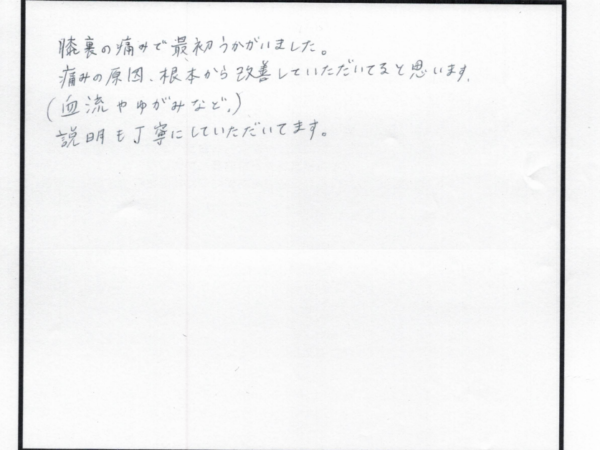 膝裏の痛みで最初うかがいました。
痛みの原因、根本から改善していただいてると思います。
(血流やゆがみなど。)
説明も丁寧にしていただいてます。